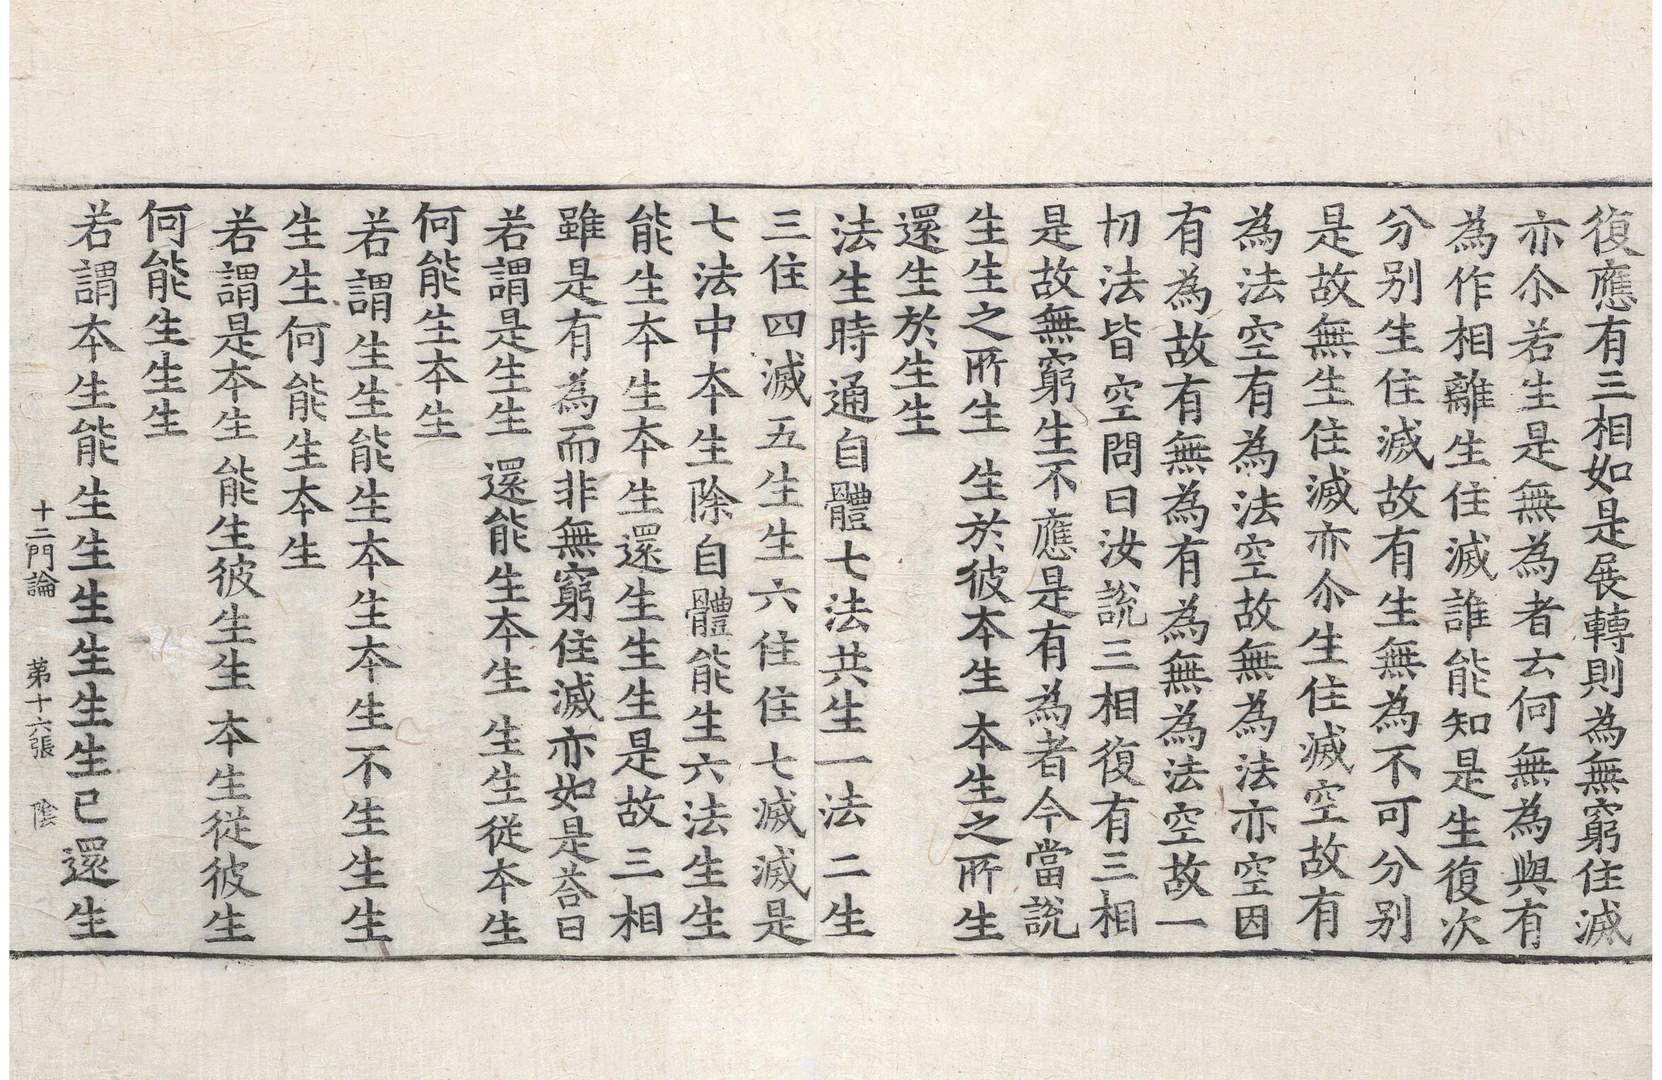 復應有三相如是展轉則為無窮住滅
亦尒若生是無為者云何無為與有
為作相離生住滅誰能知是生復次
分別生住滅故有生無為不可分別
是故無生住滅亦尒生住滅空故有
為法空有為法空故無為法亦空因
有為故有無為有為無為法空故一
切法皆空問曰汝說三相復有三相
是故無窮生不應是有為者今當說
生生之所生 生於彼本生 本生之所生
還生於生生
法生時通自體七法共生一法 二生
三住四滅五生生六住住七滅滅是
七法中本生除自體能生六法生生
能生本生本生還生生生是故三相
雖是有為而非無窮住滅亦如是荅曰
若謂是生生 還能生本生 生生從本生
何能生本生
若謂生生能生本生本生不生生生
生生何能生本生
若謂是本生 能生彼生生 本生從彼生
何能生生生
若謂本生能生生生生生生已還生
十二門論 第十六張 陰